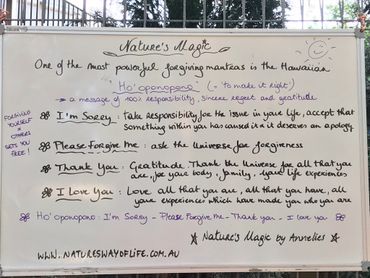 Nature's Magic
One of the most powerful forgiving mantras is the Hawaiian
Ho'oponopono (= 'to make it right')
→ a message of 100% responsibility, sincere regret and gratitude
FORGIVING
YOURSELF
&
OTHERS
SETS YOU
FREE!
I'm Sorry : take responsibility for the issue in your life, accept that
something within you has caused it & it deserves an apology
Please forgive me : ask the Universe for forgiveness
Thank You : Gratitude. Thank the Universe for all that you
are, for your body, family, your life experiences
I Love You : Love all that you are, all that you have, all
your experiences which have made you who you are
Ho'oponopono : I'm Sorry - Please Forgive me - Thank you - I love you
Nature's Magic by Annelies
WWW.NATURESWAYOFLIFE.COM.AU